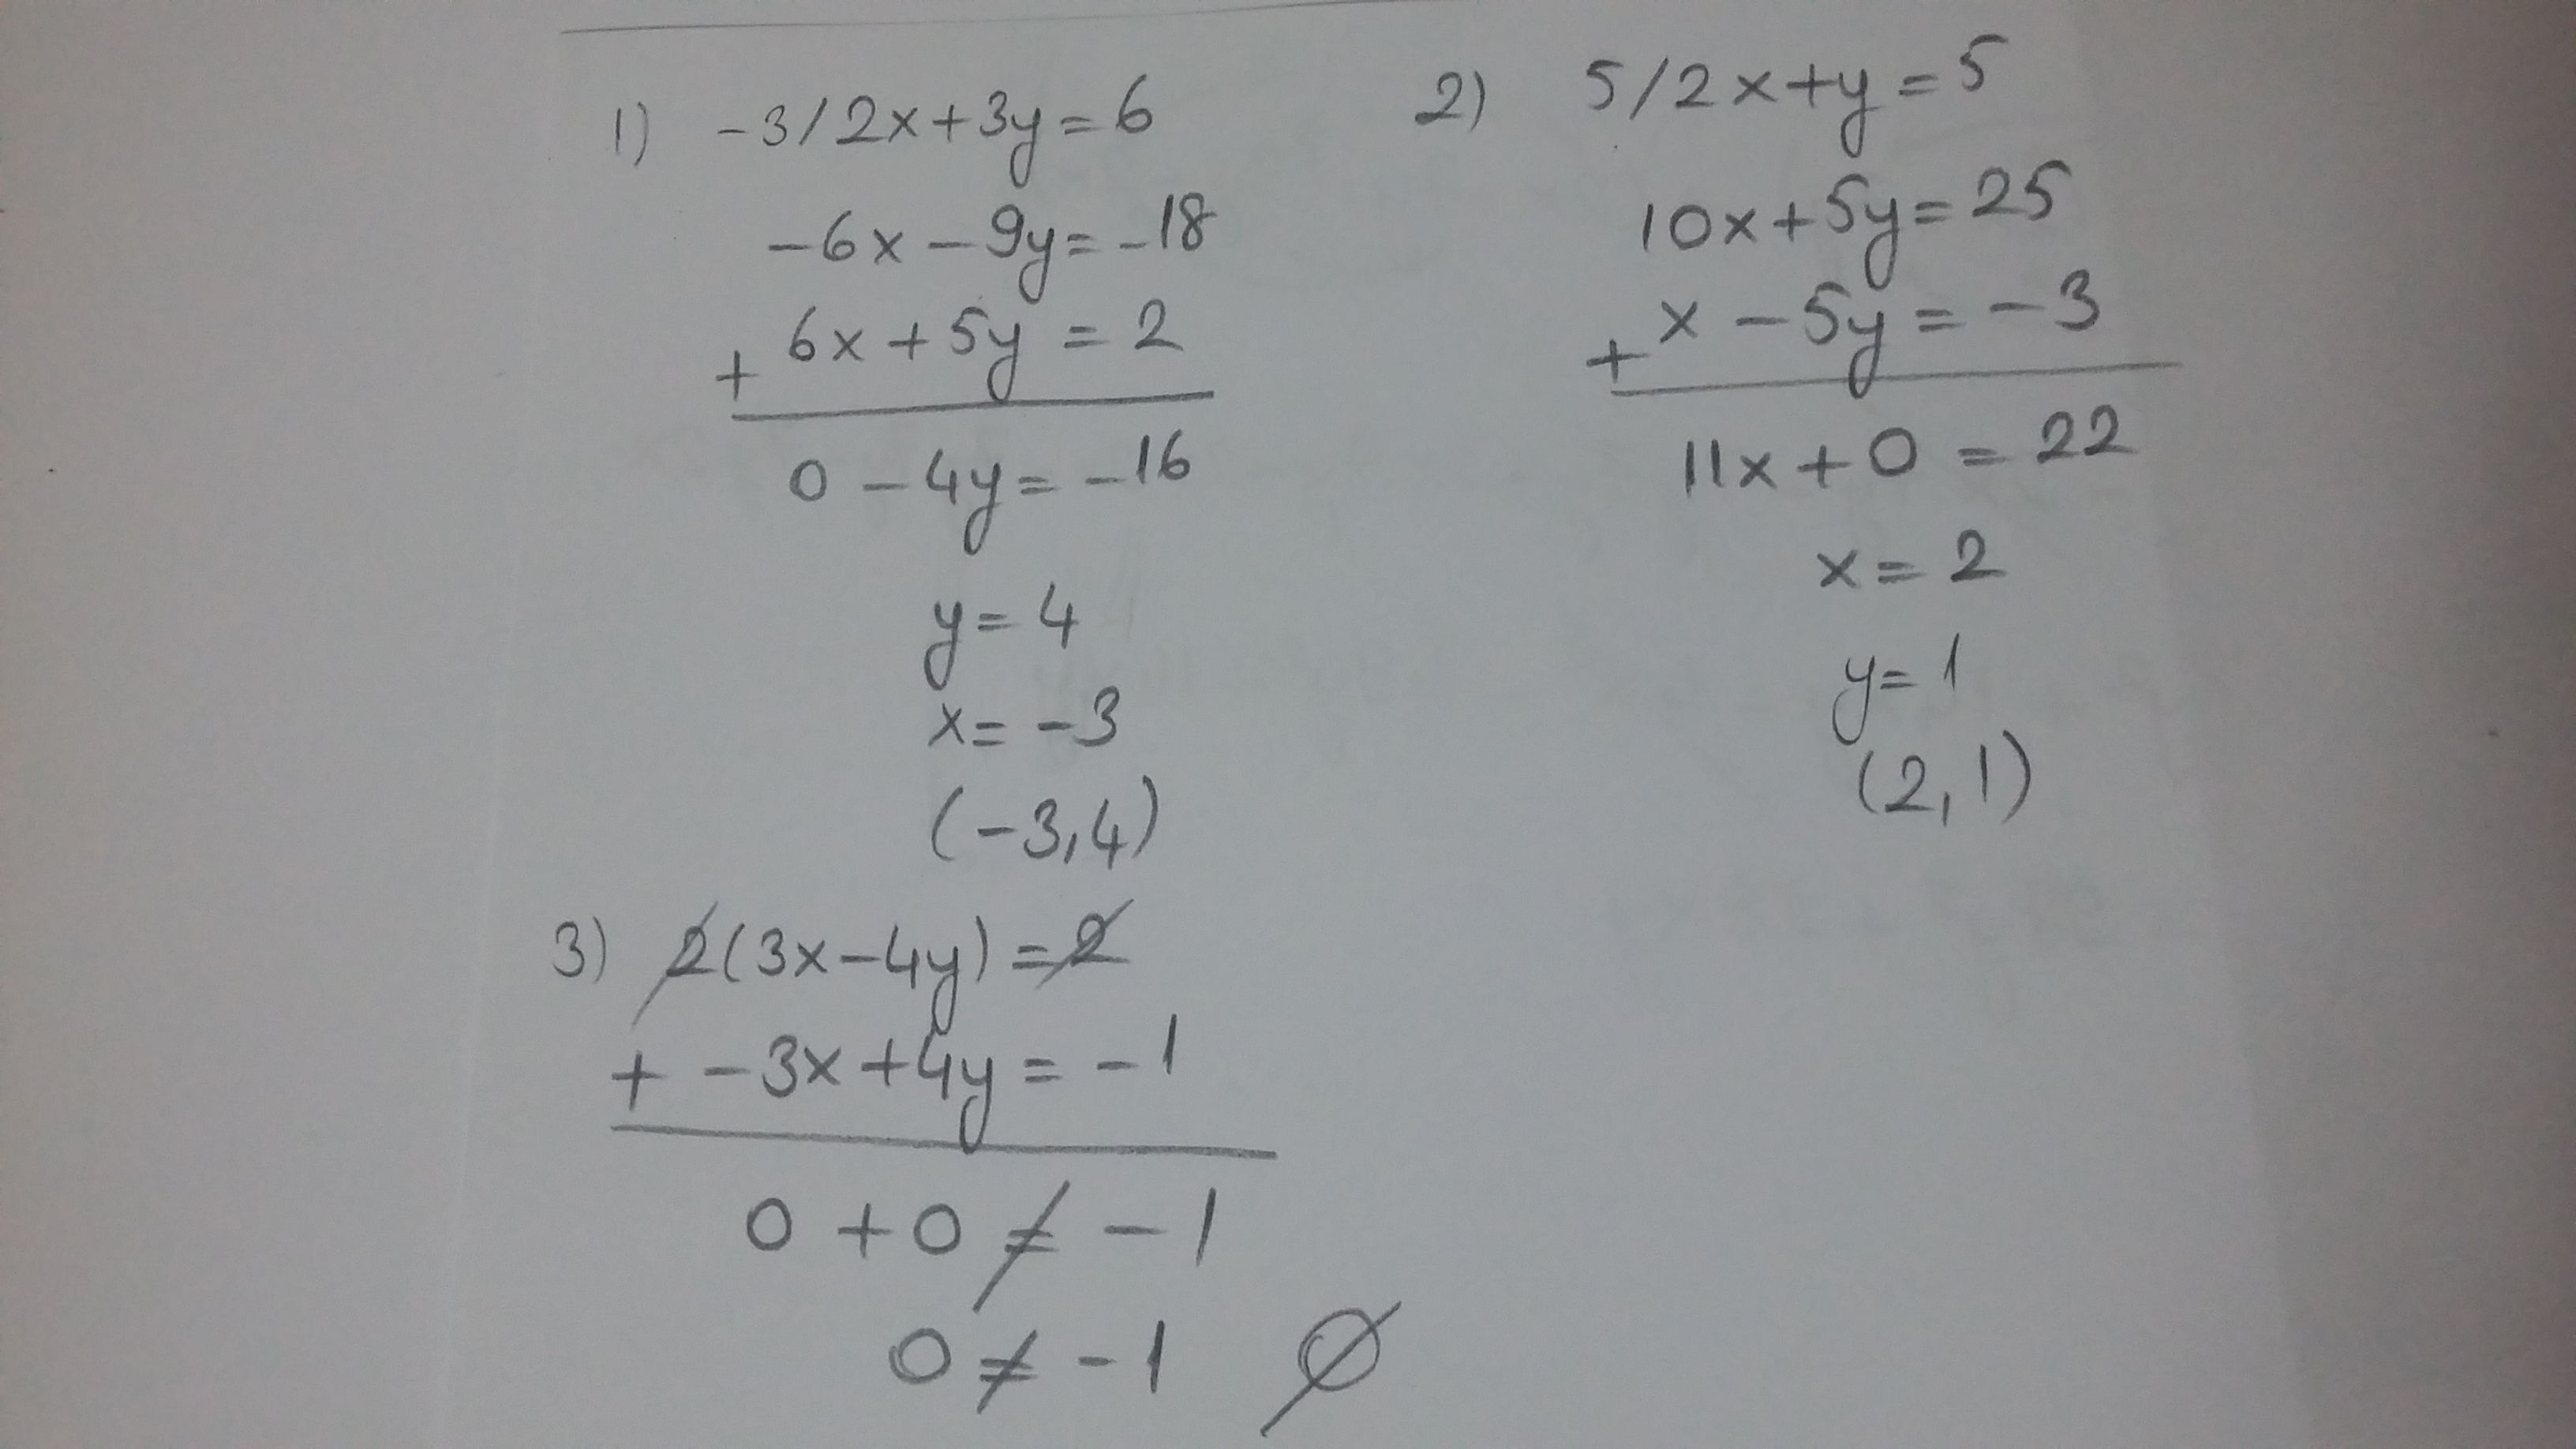 1) -3/2x+3y=6
-6x-9y=-18
6x+5y=2
+
0-4y=-16
y=4
x=-3
(-3,4)
2) 5/2x+y=5
10x+5y=25
+x-5y=-3
11x+0=22
x=2
y=1
(2,1)
3) 2(3x-4y)=2
+ -3x+4y=-1
0+0≠-1
0≠-1 ∅